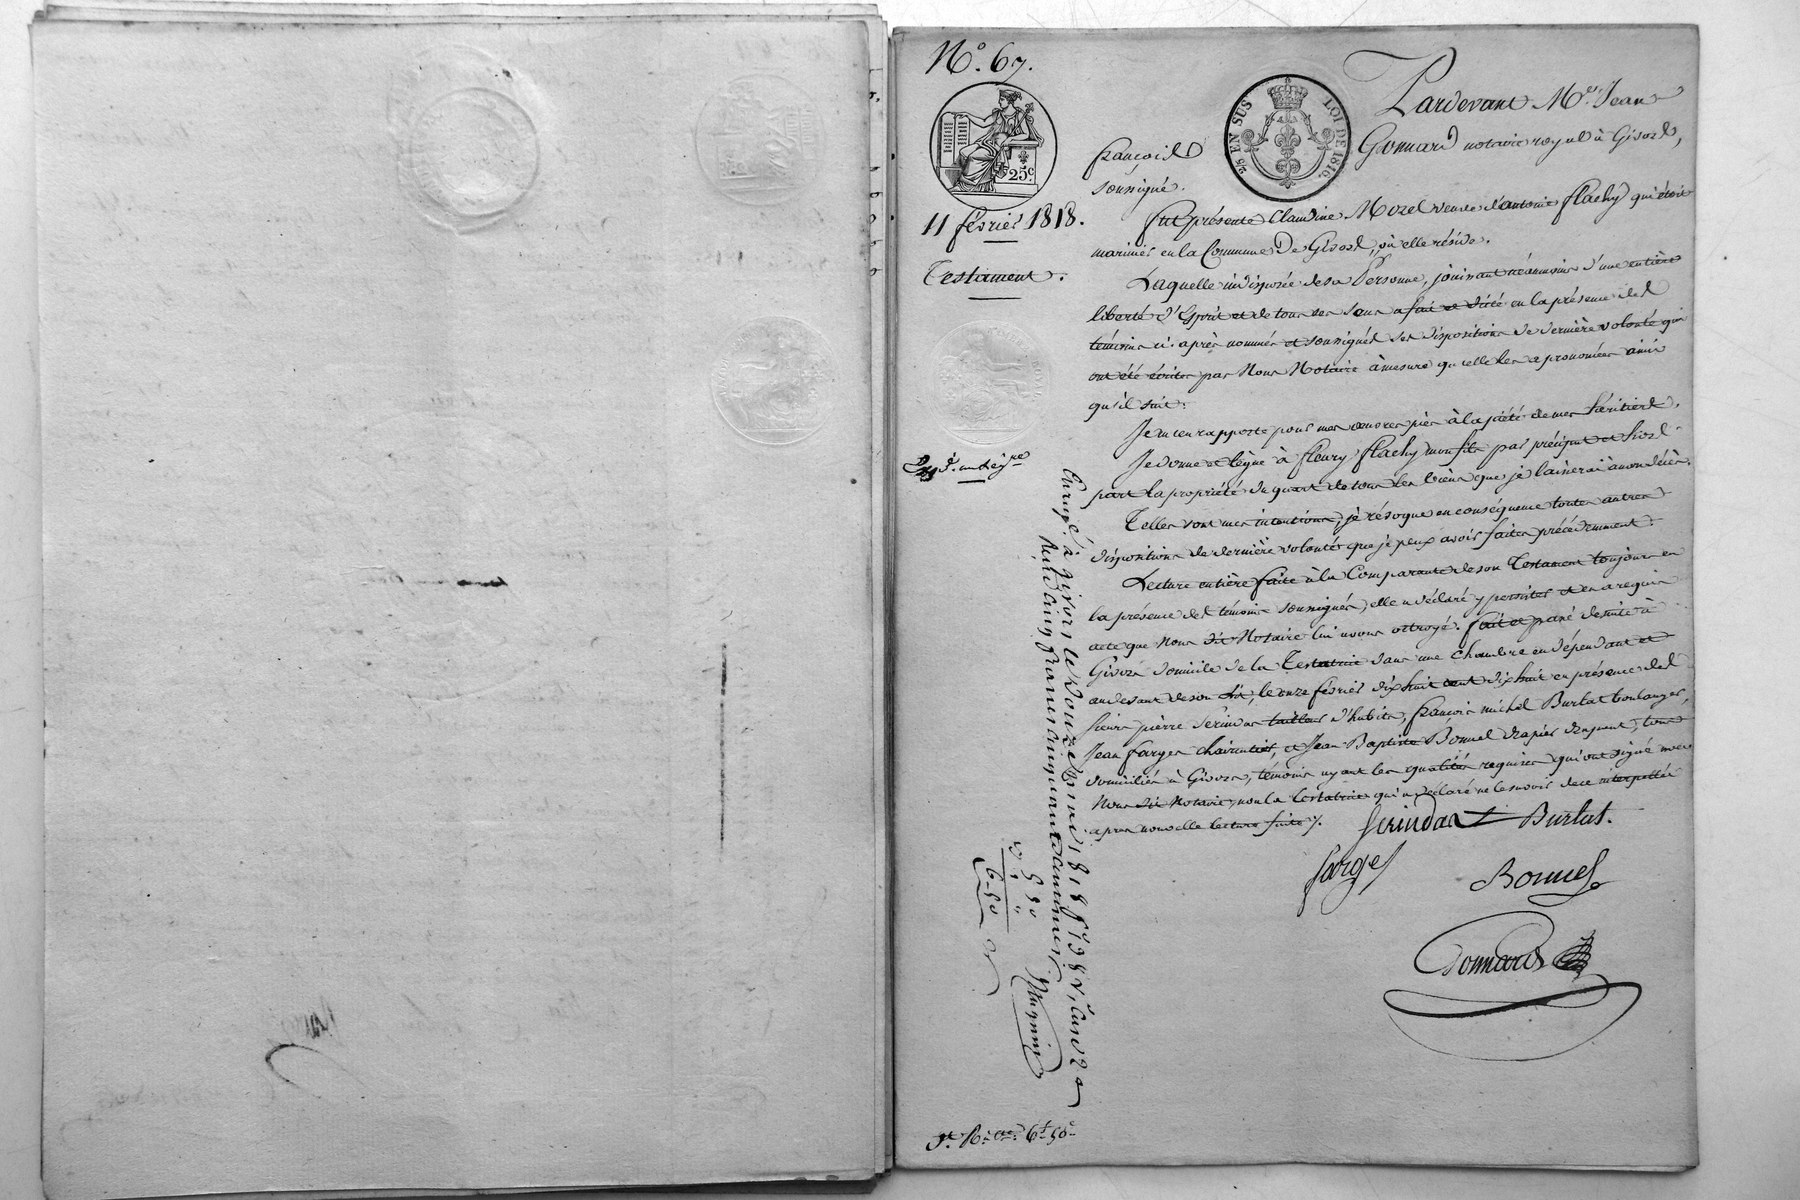 N.º 67.
25.c
2/5 EN SUS
LOI DE 1816.
11 février 1818.
Testament.
Exp.é
Pardevant M.e Jean
françois Gonnard notaire royal à Givors,
soussigné.
fut présente Claudine Morel veuve d'antoine flachy qu'étoit
marinier en la Commune De Givors, où elle réside.
Laquelle indisposée de sa Personne, jouissant néanmoins d'une entière
liberté d'Esprit et de tous ses sens a fait et dicté en la présence des
témoins ci-après nommés et soussignés ses dispositions de dernière volonté qui
ont été écrites par Nous Notaire à mesure qu'elle les a prononcées ainsi
qu'il suit:
Je m'en rapporte pour mes oeuvres pies à la piété de mes héritiers.
Je donne et lègue à fleury flachy mon fils par préciput et hors
part la propriété du quart de tous les biens que je laisserai à mon décès.
Telles sont mes intentions, je révoque en conséquence toutes autres
dispositions de dernière volonté que je peux avoir faites précédemment.
Lecture entière faite à la Comparante de son Testament toujours en
la présence des témoins soussignés, elle a déclaré y persister et en a requis
acte que Nous dit Notaire lui avons octroyé. fait et passé de suite à
Givors domicile de la Testatrice dans une chambre en dépendant et
au devant de son lit, le onze février dix huit cent dix huit en présence des
sieurs pierre Serindas tailleur d'habits, françois michel Burlat boulanger,
Jean farges chaircutier, et Jean Baptiste Bonnel drapier drapant, tous
domiciliés à Givors, témoins ayant les qualités requises qui ont signé avec
Nous dit Notaire, non la testatrice qui a déclaré ne le savoir de ce interpellée
après nouvelle lecture faite /.
Serindas Burlat.
farges
Bonnel
Gonnard
Enregé à Givors le Douze février 1818 f.º 198 v. Case 2
Reçu cinq francs cinquante centimes
5 50
6-50
6f 50c